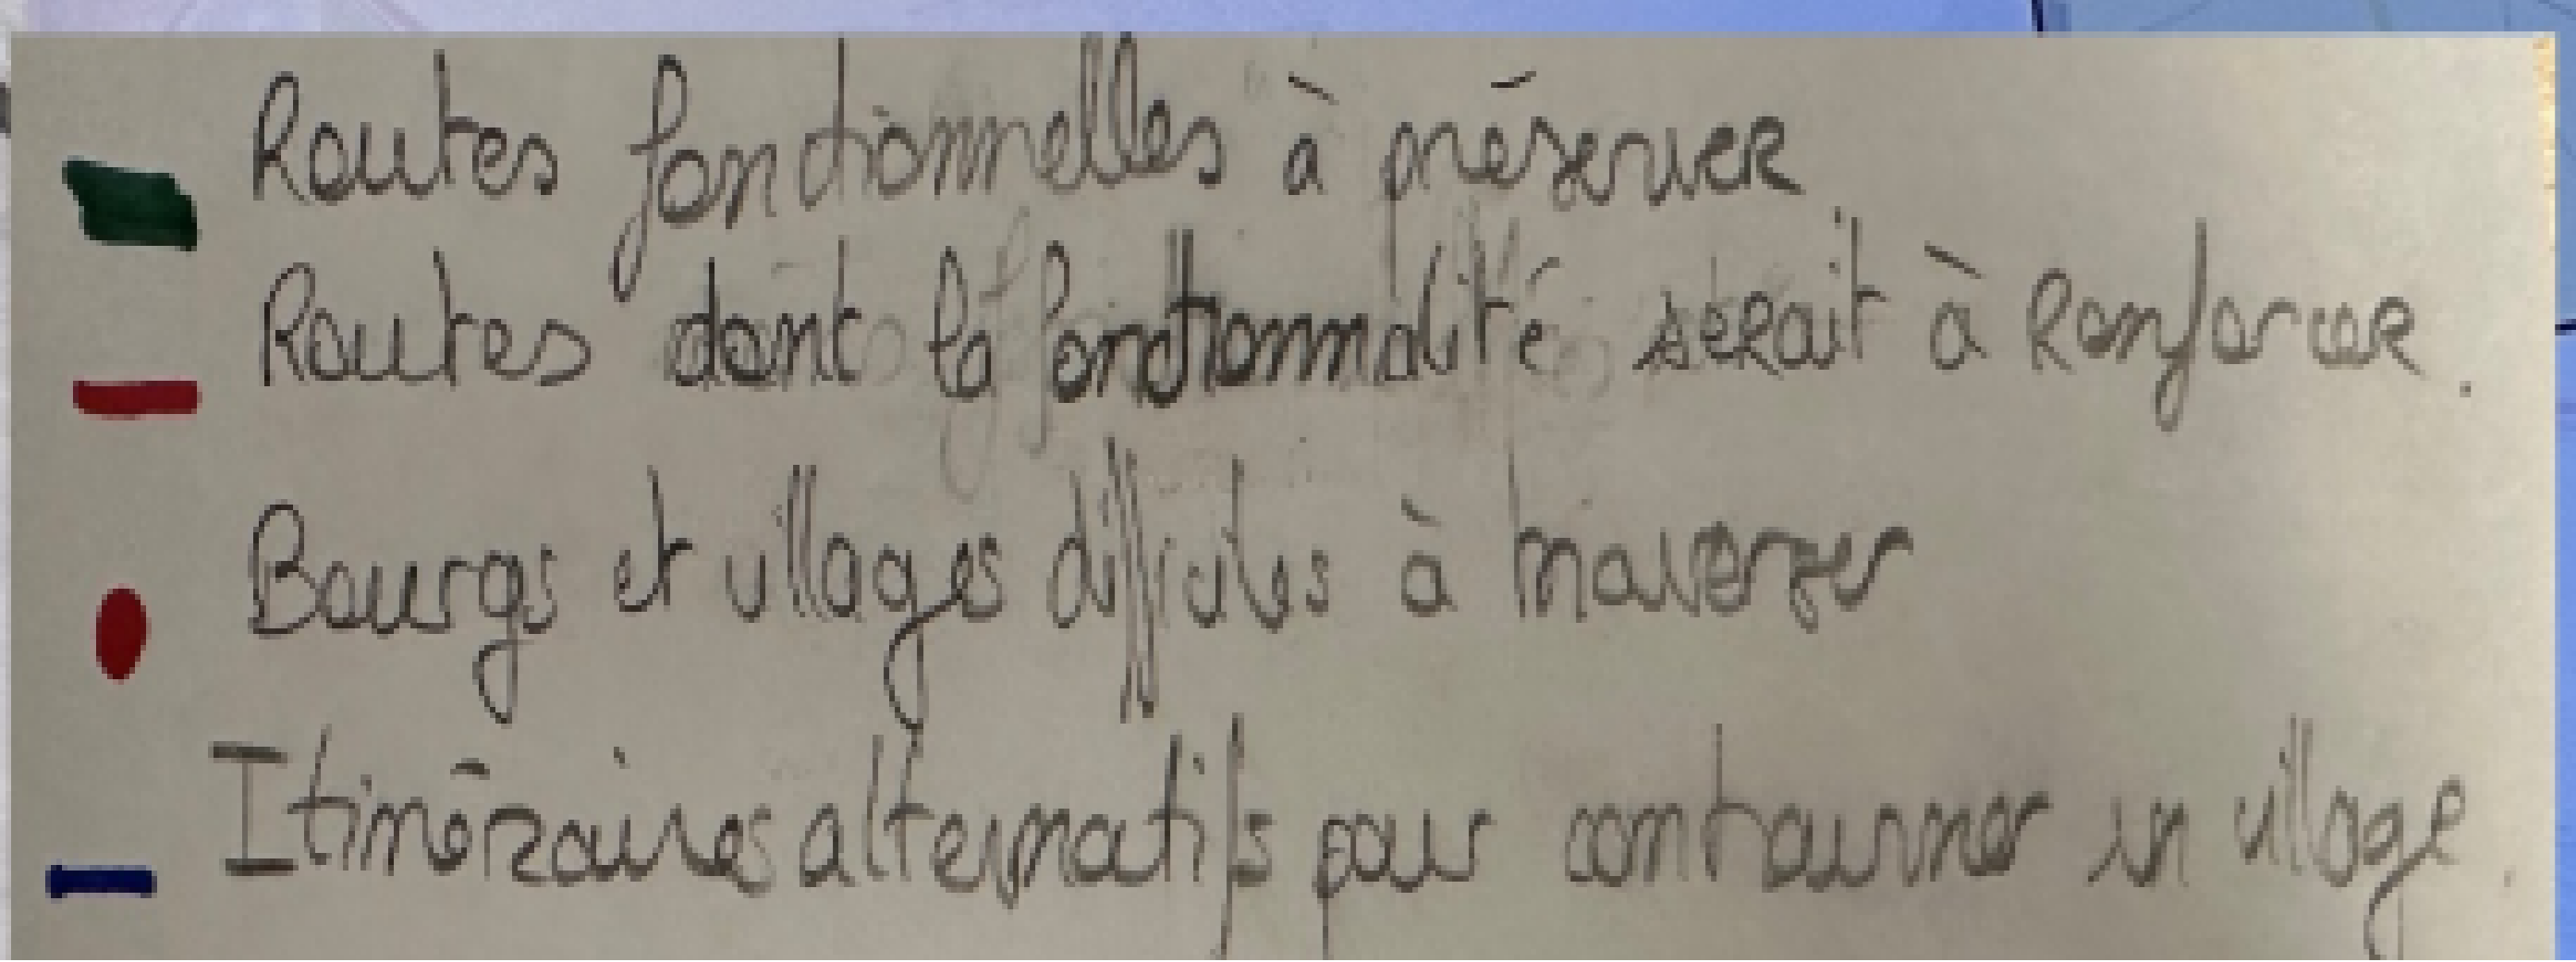 Routes fonctionnelles à préserver
Routes dont la fonctionnalité serait à Renforcer.
Bourgs et villages difficiles à traverser
Itinéraires alternatifs pour contourner un village.